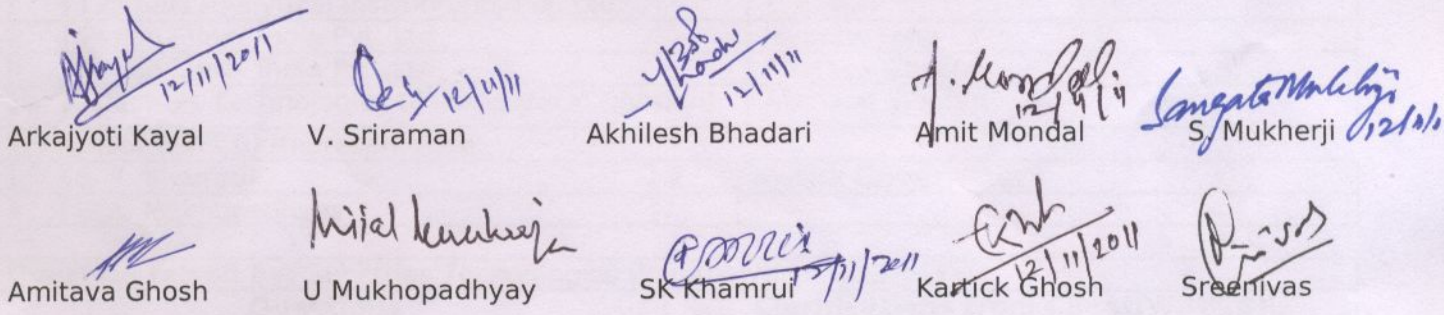 12/11/2011 12/11/11 12/11/11 A. Mondal 12/11/11 Sangata Mukherji 12/11/11
Arkajyoti Kayal V. Sriraman Akhilesh Bhadari Amit Mondal S. Mukherji
12/11/2011 12/11/2011
Amitava Ghosh U Mukhopadhyay SK Khamrui Kartick Ghosh Sreenivas